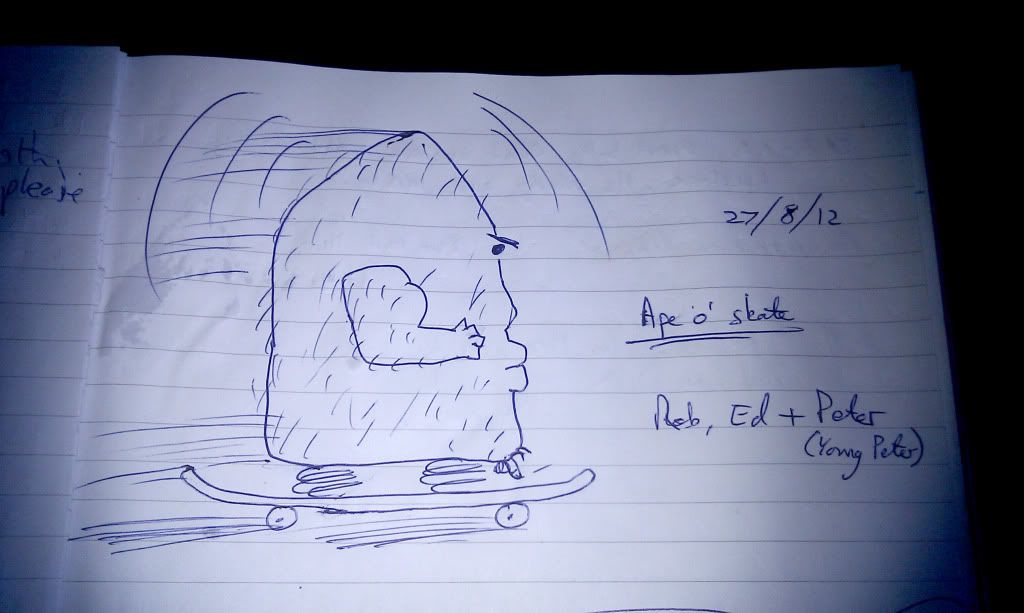 please
27/8/12
Ape 'o' skate
Rob, Ed + Peter
(Young Peter)